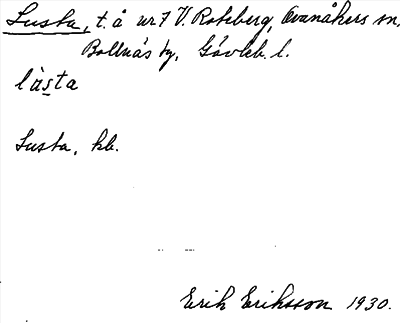 Lusta, t. å nr 7 V. Roteberg, Ovanåkers sn,
Bollnäs tg, Gävleb. l.
làsta
Lusta, hb.
Erik Eriksson 1930.